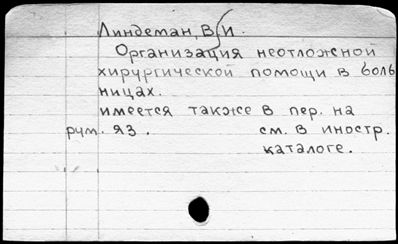 Линдеман, В. И.
Организация неотложной
хирургической помощи в боль
ницах.
имеется также в пер. на
рум. яз. см. в иностр.
каталоге.